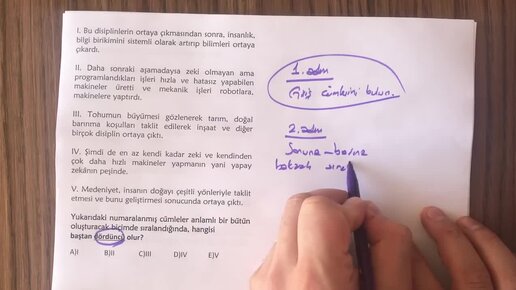 I. Bu disiplinlerin ortaya çıkmasından sonra, insanlık,
bilgi birikimini sistemli olarak artırıp bilimleri ortaya
çıkardı.
II. Daha sonraki aşamadaysa zeki olmayan ama
programlandıkları işleri hızla ve hatasız yapabilen
makineler üretti ve mekanik işleri robotlara,
makinelere yaptırdı.
III. Tohumun büyümesi gözlenerek tarım, doğal
barınma koşulları taklit edilerek inşaat ve diğer
birçok disiplin ortaya çıktı.
IV. Şimdi de en az kendi kadar zeki ve kendinden
çok daha hızlı makineler yapmanın yani yapay
zekânın peşinde.
V. Medeniyet, insanın doğayı çeşitli yönleriyle taklit
etmesi ve bunu geliştirmesi sonucunda ortaya çıktı.
Yukarıdaki numaralanmış cümleler anlamlı bir bütün
oluşturacak biçimde sıralandığında, hangisi
baştan dördüncü olur?
A)I B)II C)III D)IV E)V
1. adım
Giriş cümlesini bulun.
2. adım
Sonuna – başına
bakarak